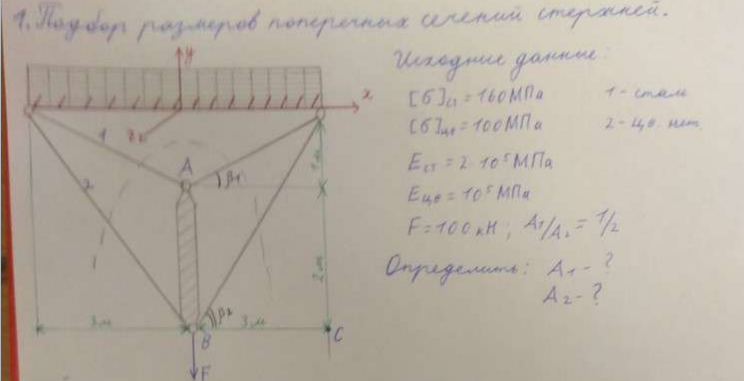 1. Подбор размеров поперечных сечений стержней.
Исходные данные:
[б]ст = 160 МПа 1 - сталь
[б]цв = 100 МПа 2 - цв. мет.
Eст = 2 · 10⁵ МПа
Eцв = 10⁵ МПа
F = 100 кН ; A₁/A₂ = 1/2
Определить: A₁ - ?
A₂ - ?
y
x
z
1
A
β₁
1 м
2
2 м
β₂
3 м
3 м
B
C
F